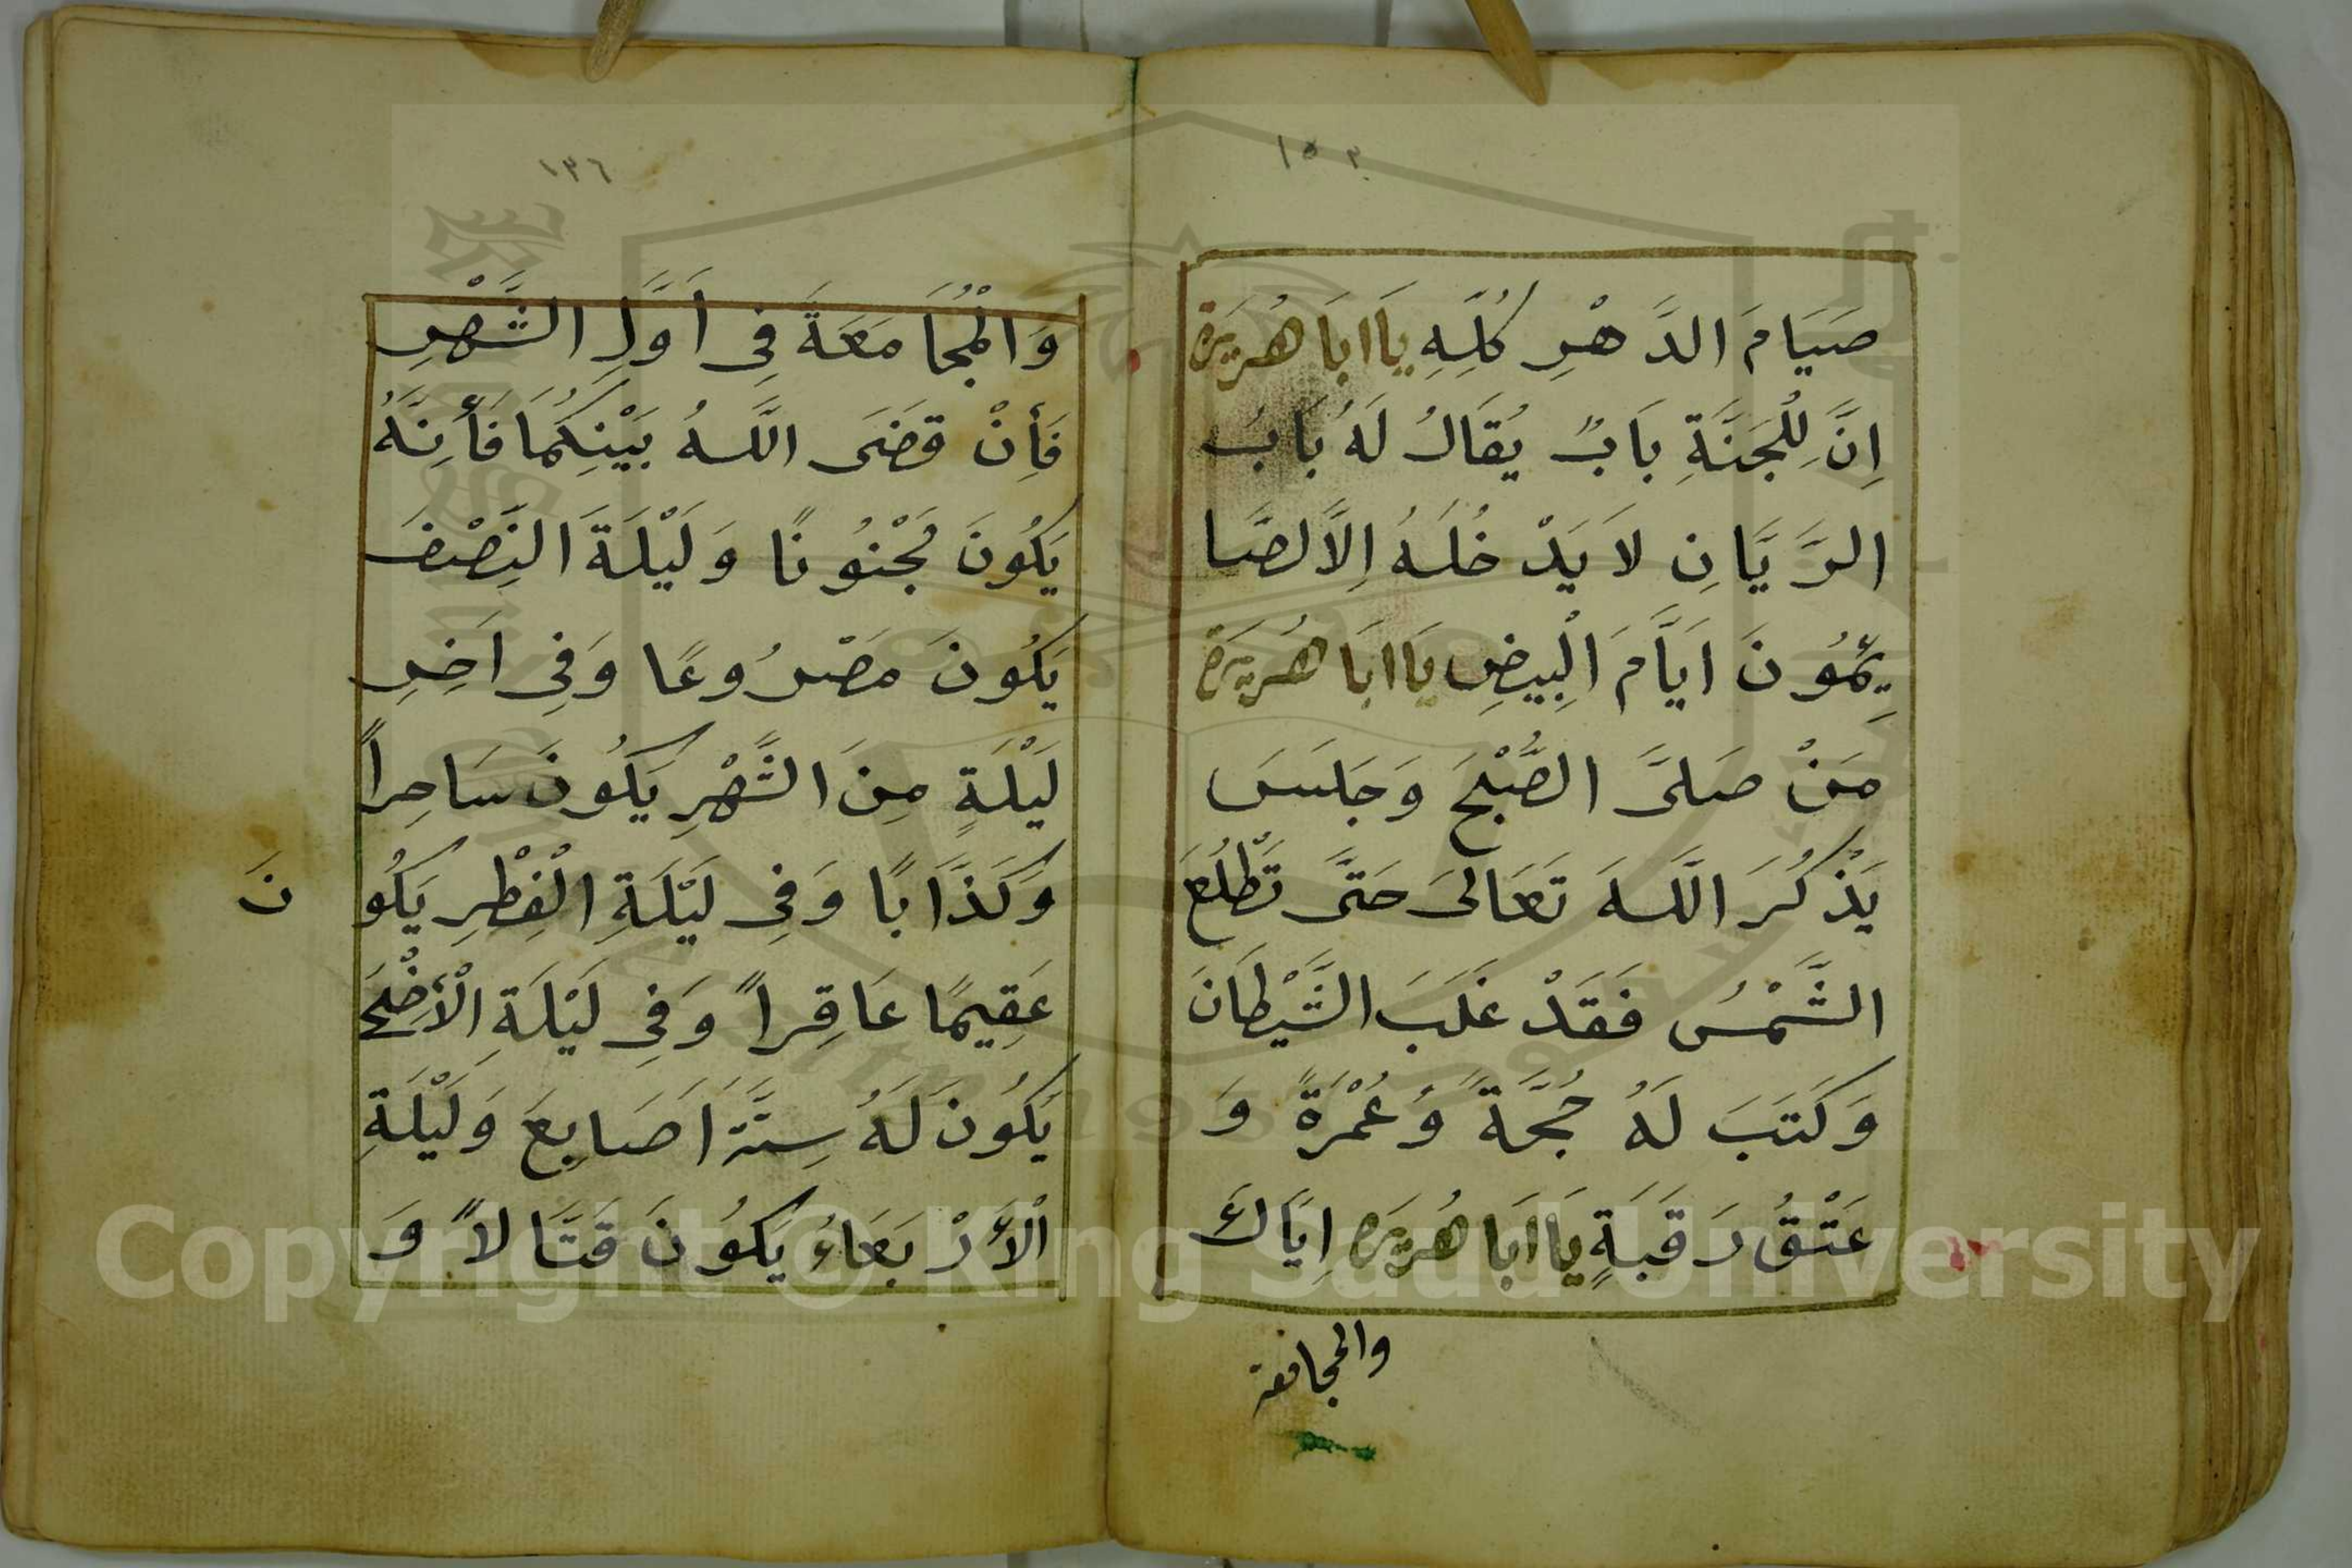 ١٥٣
صَيَامَ الدَّهْرِ كُلِّهِ يَا اَبَا هُرَيْرَة
اِنَّ لِلْجَنَّةِ بَابٌ يُقَالُ لَهُ بَابُ
الرَّيَّانِ لَا يَدْخُلَهُ اِلَّا لصَّا
ئِمُونَ اَيَّامَ الْبِيضِ يَا اَبَا هُرَيْرَة
مَنْ صَلَّى الصُّبْحَ وَجَلَسَ
يَذْكُرَ اللَّهَ تَعَالَى حَتَّى تَطْلُعَ
الشَّمْسُ فَقَدْ غَلَبَ الشَّيْطَانَ
وَكَتَبَ لَهُ حُجَّةً وَعُمْرَةً وَ
عَتْقُ رَقَبَةٍ يَا اَبَا هُرَيْرَه اِيَّاكَ
والمجامعة
١٣٦
وَالْمُجَامَعَةَ فِى اَوَّلِ الشَّهْرِ
فَأِنْ قَضَى اللَّهُ بَيْنِكُمَا فَأِنَّهُ
يَكُونَ مَجْنُونًا وَلَيْلَةَ النِّصْفَ
يَكُونَ مَصْرُوعًا وَفِى اَخِرِ
لَيْلَةٍ مِنَ الشَّهْرِ يَكُونَ سَاحِراً
وَكَذَّابًا وَفِى لَيْلَةِ الْفِطْرِ يَكُو نَ
عَقِيمًا عَاقِراً وَفِى لَيْلَةِ الْأَضْحَى
يَكُونَ لَهُ سِتَّةَ اَصَابِعَ وَلَيْلَةِ
الْأَرْبَعَاءُ يَكُونَ قَتَّالاً وَ
Copyright © King Saud University